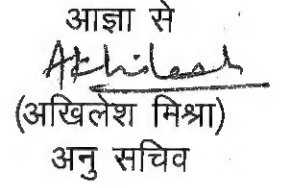 आज्ञा से
Akhileash
(अखिलेश मिश्रा)
अनु सचिव